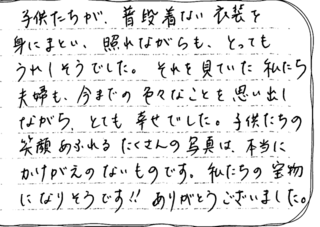 子供たちが、普段着ない衣装を
身にまとい、照れながらも、とっても
うれしそうでした。それを見ていた私たち
夫婦も、今までの色々なことを思い出し
ながら、とても幸せでした。子供たちの
笑顔あふれるたくさんの写真は、本当に
かけがえのないものです。私たちの宝物
になりそうです!! ありがとうございました。